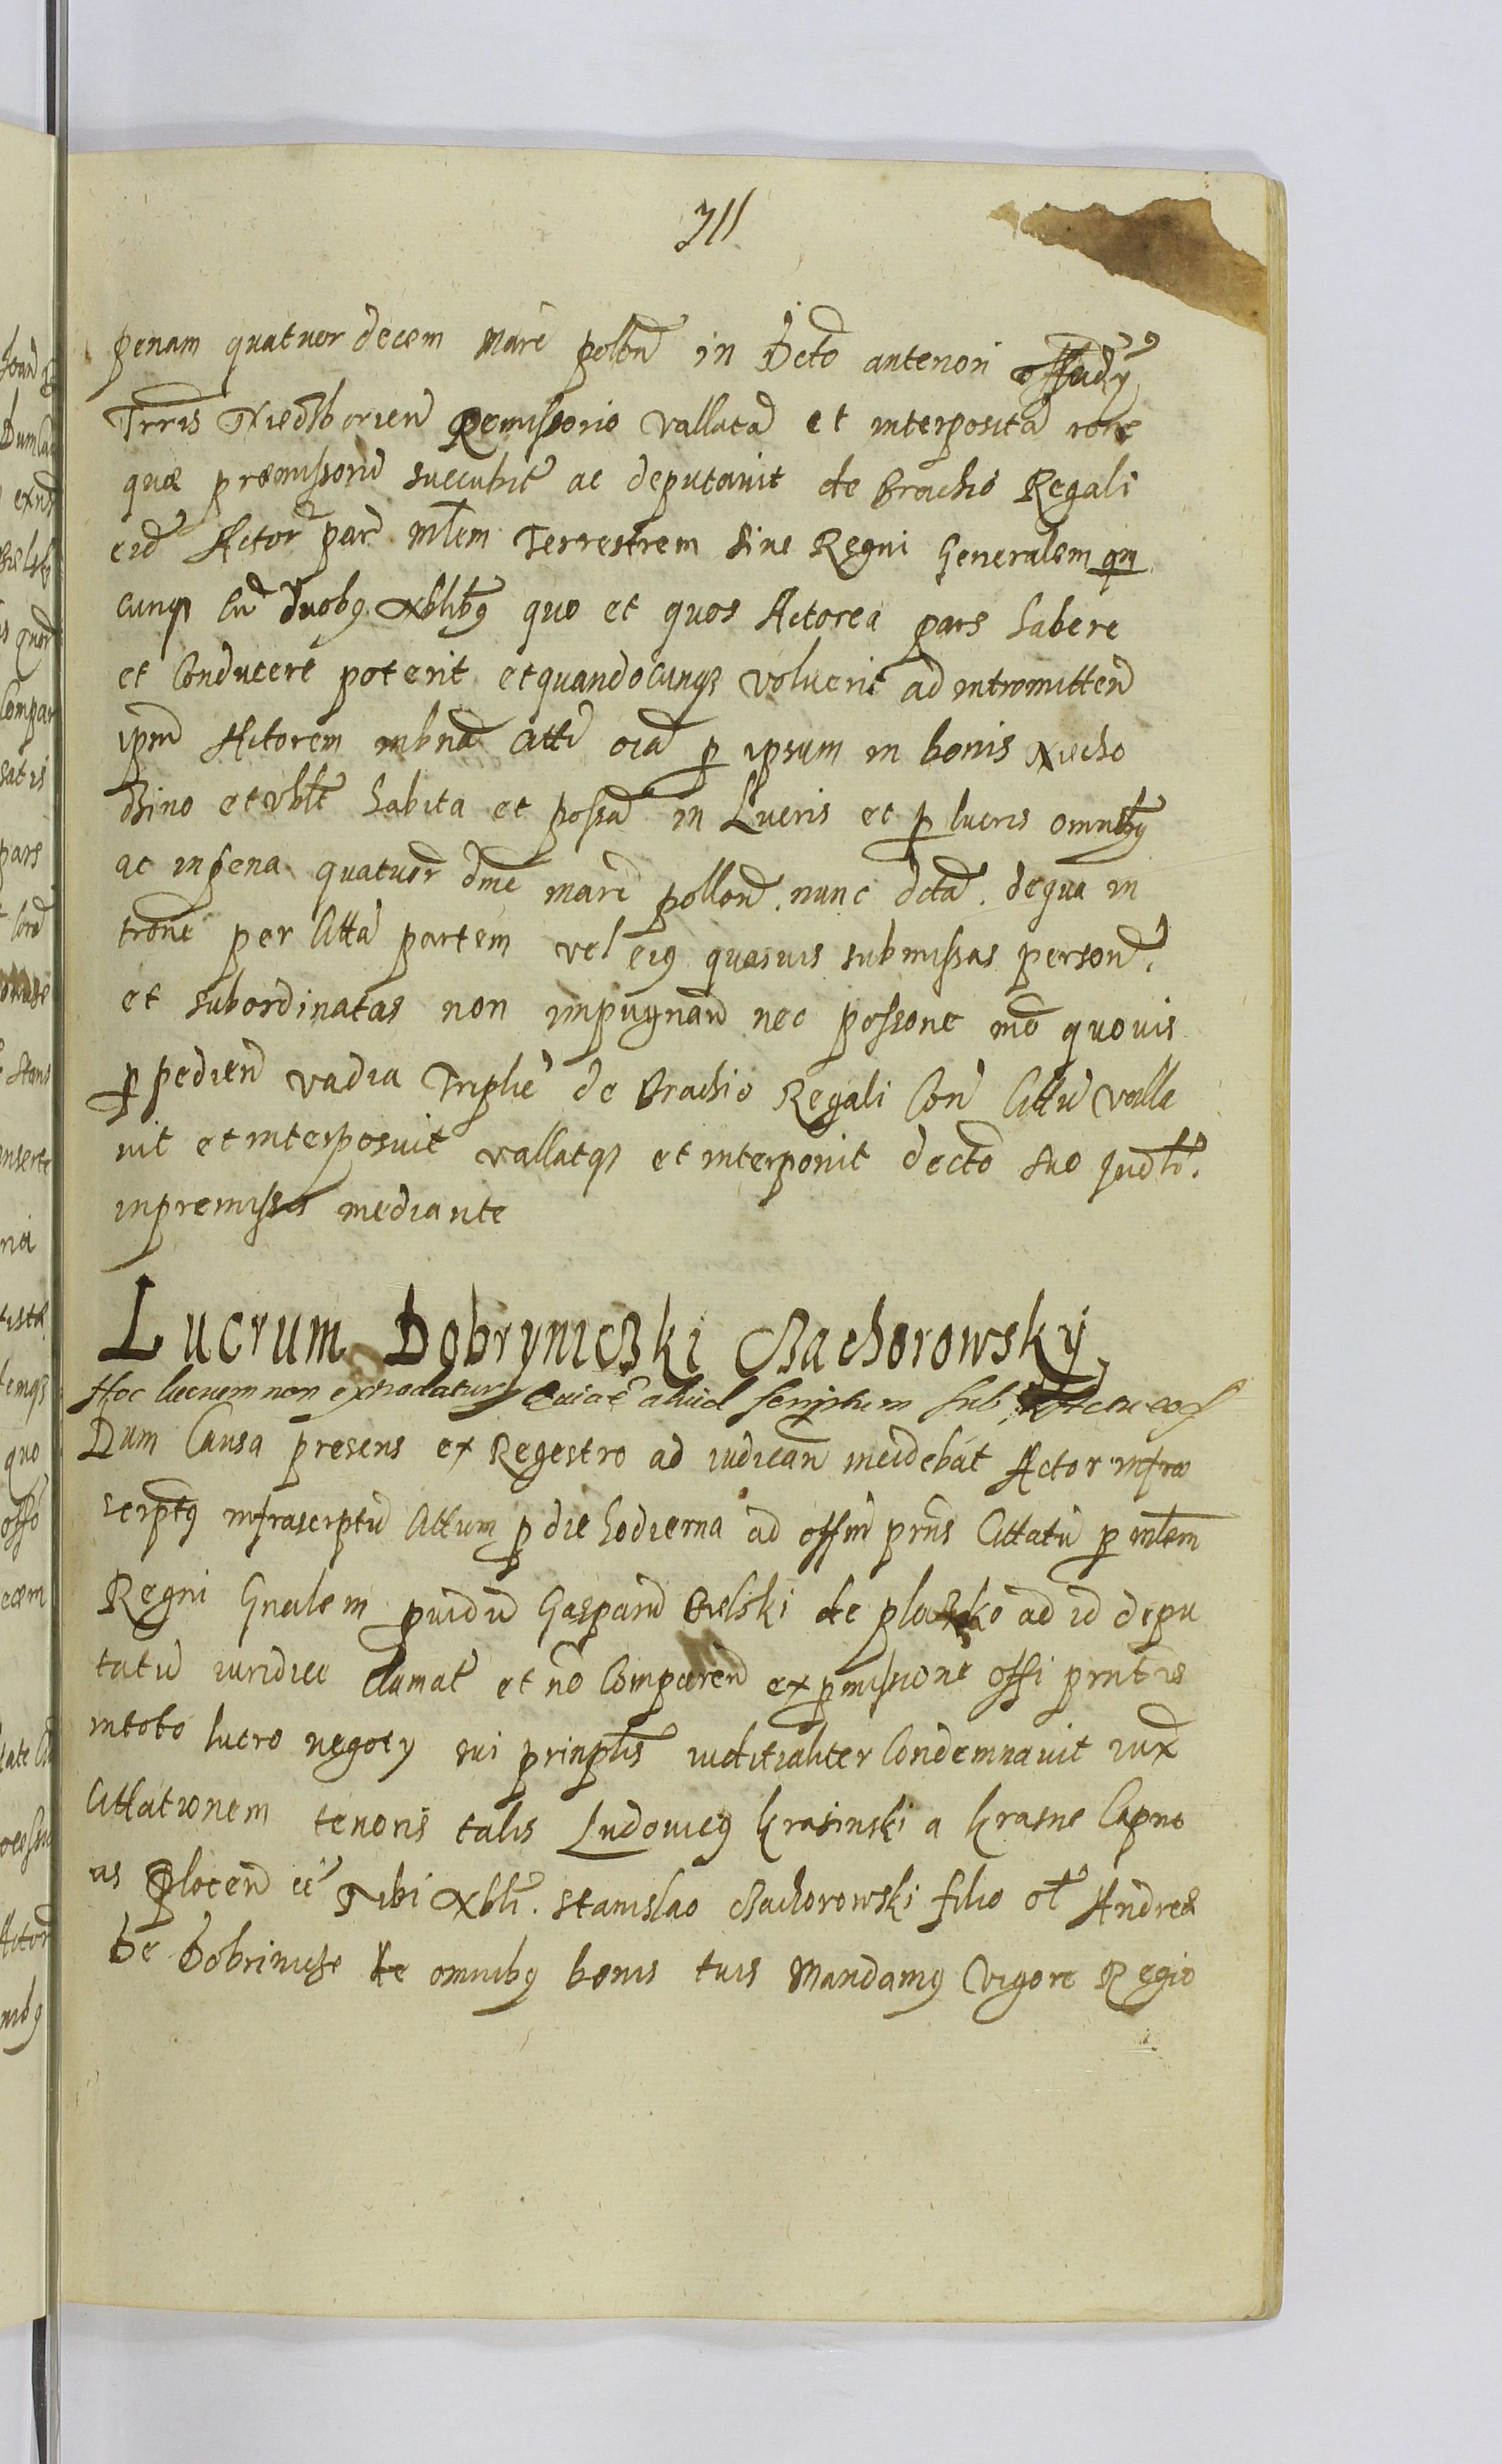 711
penam quatuor decem marc polon in Dcto anteriori
Trris Niedzborien Remissorio vallata et interposita rone
quæ præmissoru succubit ac deputavit de Brachio Regali
eid Actor par mlem Terrestrem sive Regni Generalem qm
cunq cu duobq Nblibq quo et quos Actorea pars habere
et Conducere poterit et quandocunqz voluerit ad intromitten
ipm Actorem in bna Citti oia p ipsum in bonis Niecho
dzino et vblt habita et possa in Lucris et p lucris omnibq
ac in pena quatuor dme marc pollon. nunc dcta. de qua in
trone per Citta partem vel eiq quasvis submissas person.
et subordinatas non impugnan nec possone mo quovis
p pedien vadia Triplic de Brachio Regali Con Cittu valla
vit et interposuit vallatqz et interponit decto suo Judli.
in premissis mediante
Lucrum Dobryniczki Czachorowsky
Hoc lucrum non extradatur Quia e aliud scriptum sub
Dum Causa presens ex Regestro ad iudican incidebat Actor infra
scrptq infrascrptu Cittum p die hodierna ad offm prns Cittatu p mlem
Regni Gnalem pvidu Gasparu Bielski de ad id depu
tatu iuridice clamat et no Comparen ex pmissione offi prntis
in toto lucro negoty sui prinplis iuditialiter Condemnavit iux
Cittationem tenoris talis Ludovicq Krasinski a Krasne Capne
us Plocen cc Tibi Nbli. Stanislao Czachorowski filio ol Andreæ
de Dobrinicze de omnibq bonis tuis Mandamq Vigore Regio